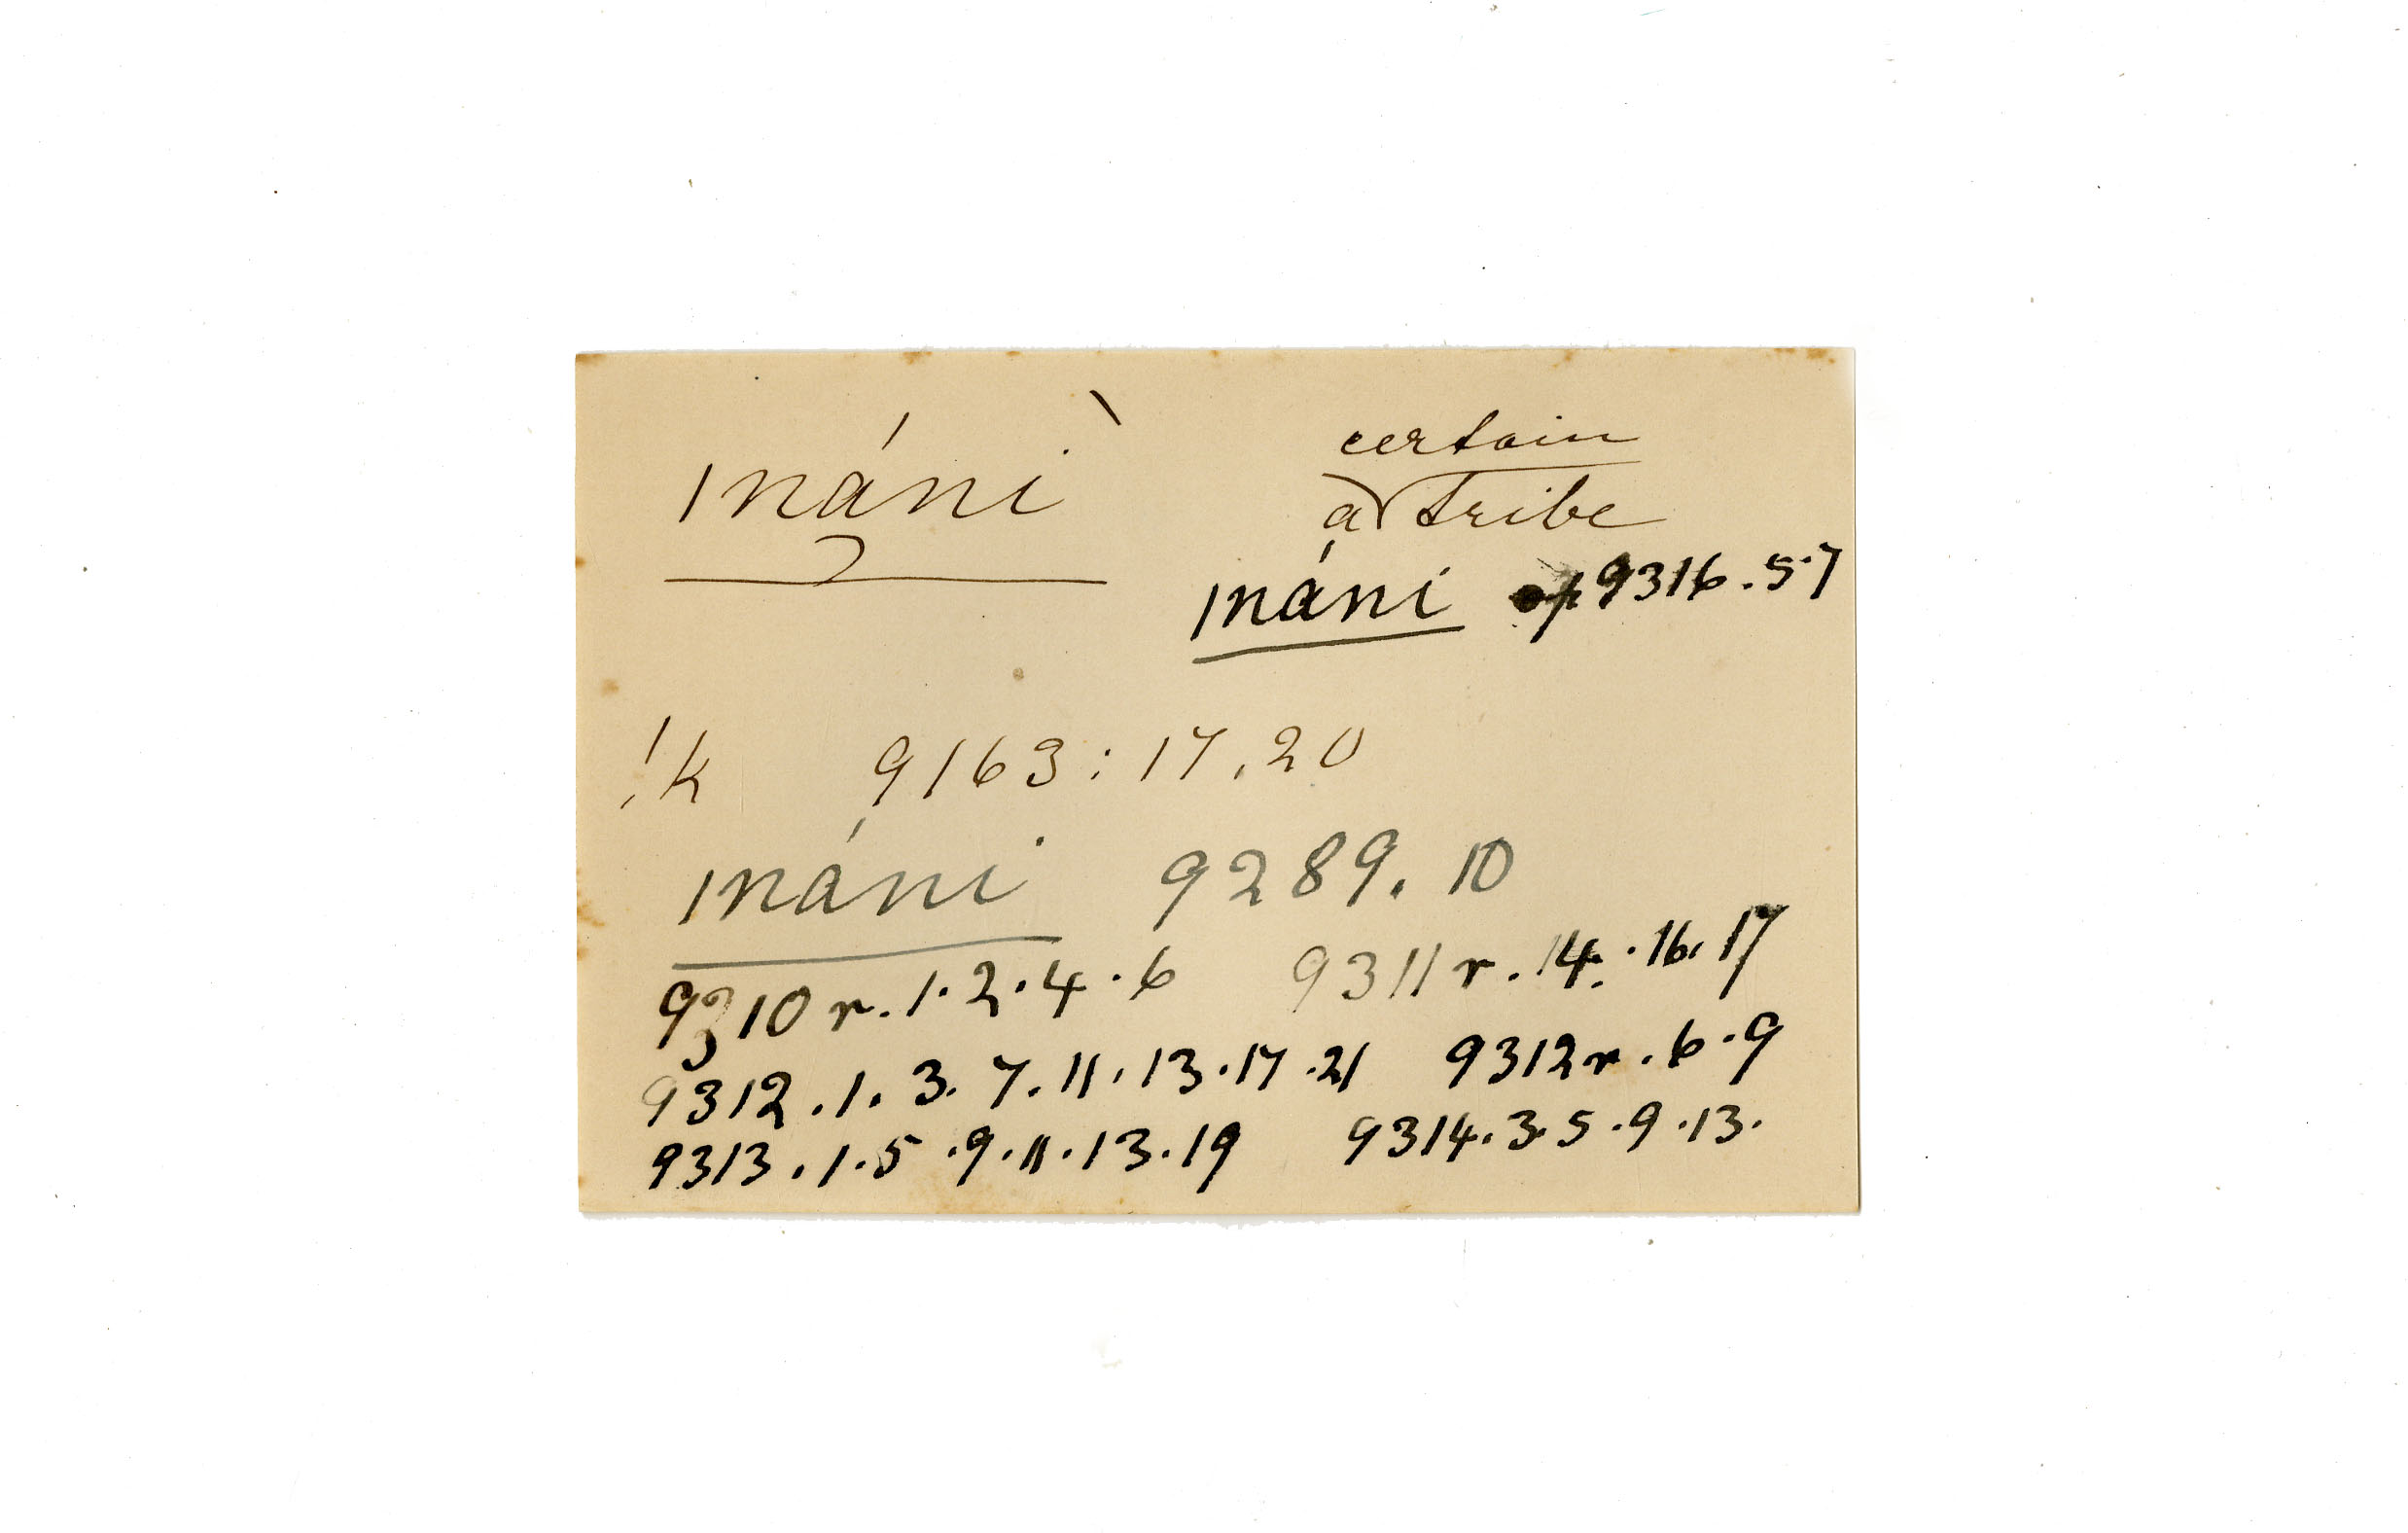 ǀnánì certain
a tribe
ǀnáni op 9316.5.7
!k 9163:17.20
ǀnáni 9289.10
9310 r.1.2.4.6 9311 r.14.16.17
9312.1.3.7.11.13.17.21 9312 r.6.9
9313.1.5.9.11.13.19 9314.3.5.9.13.